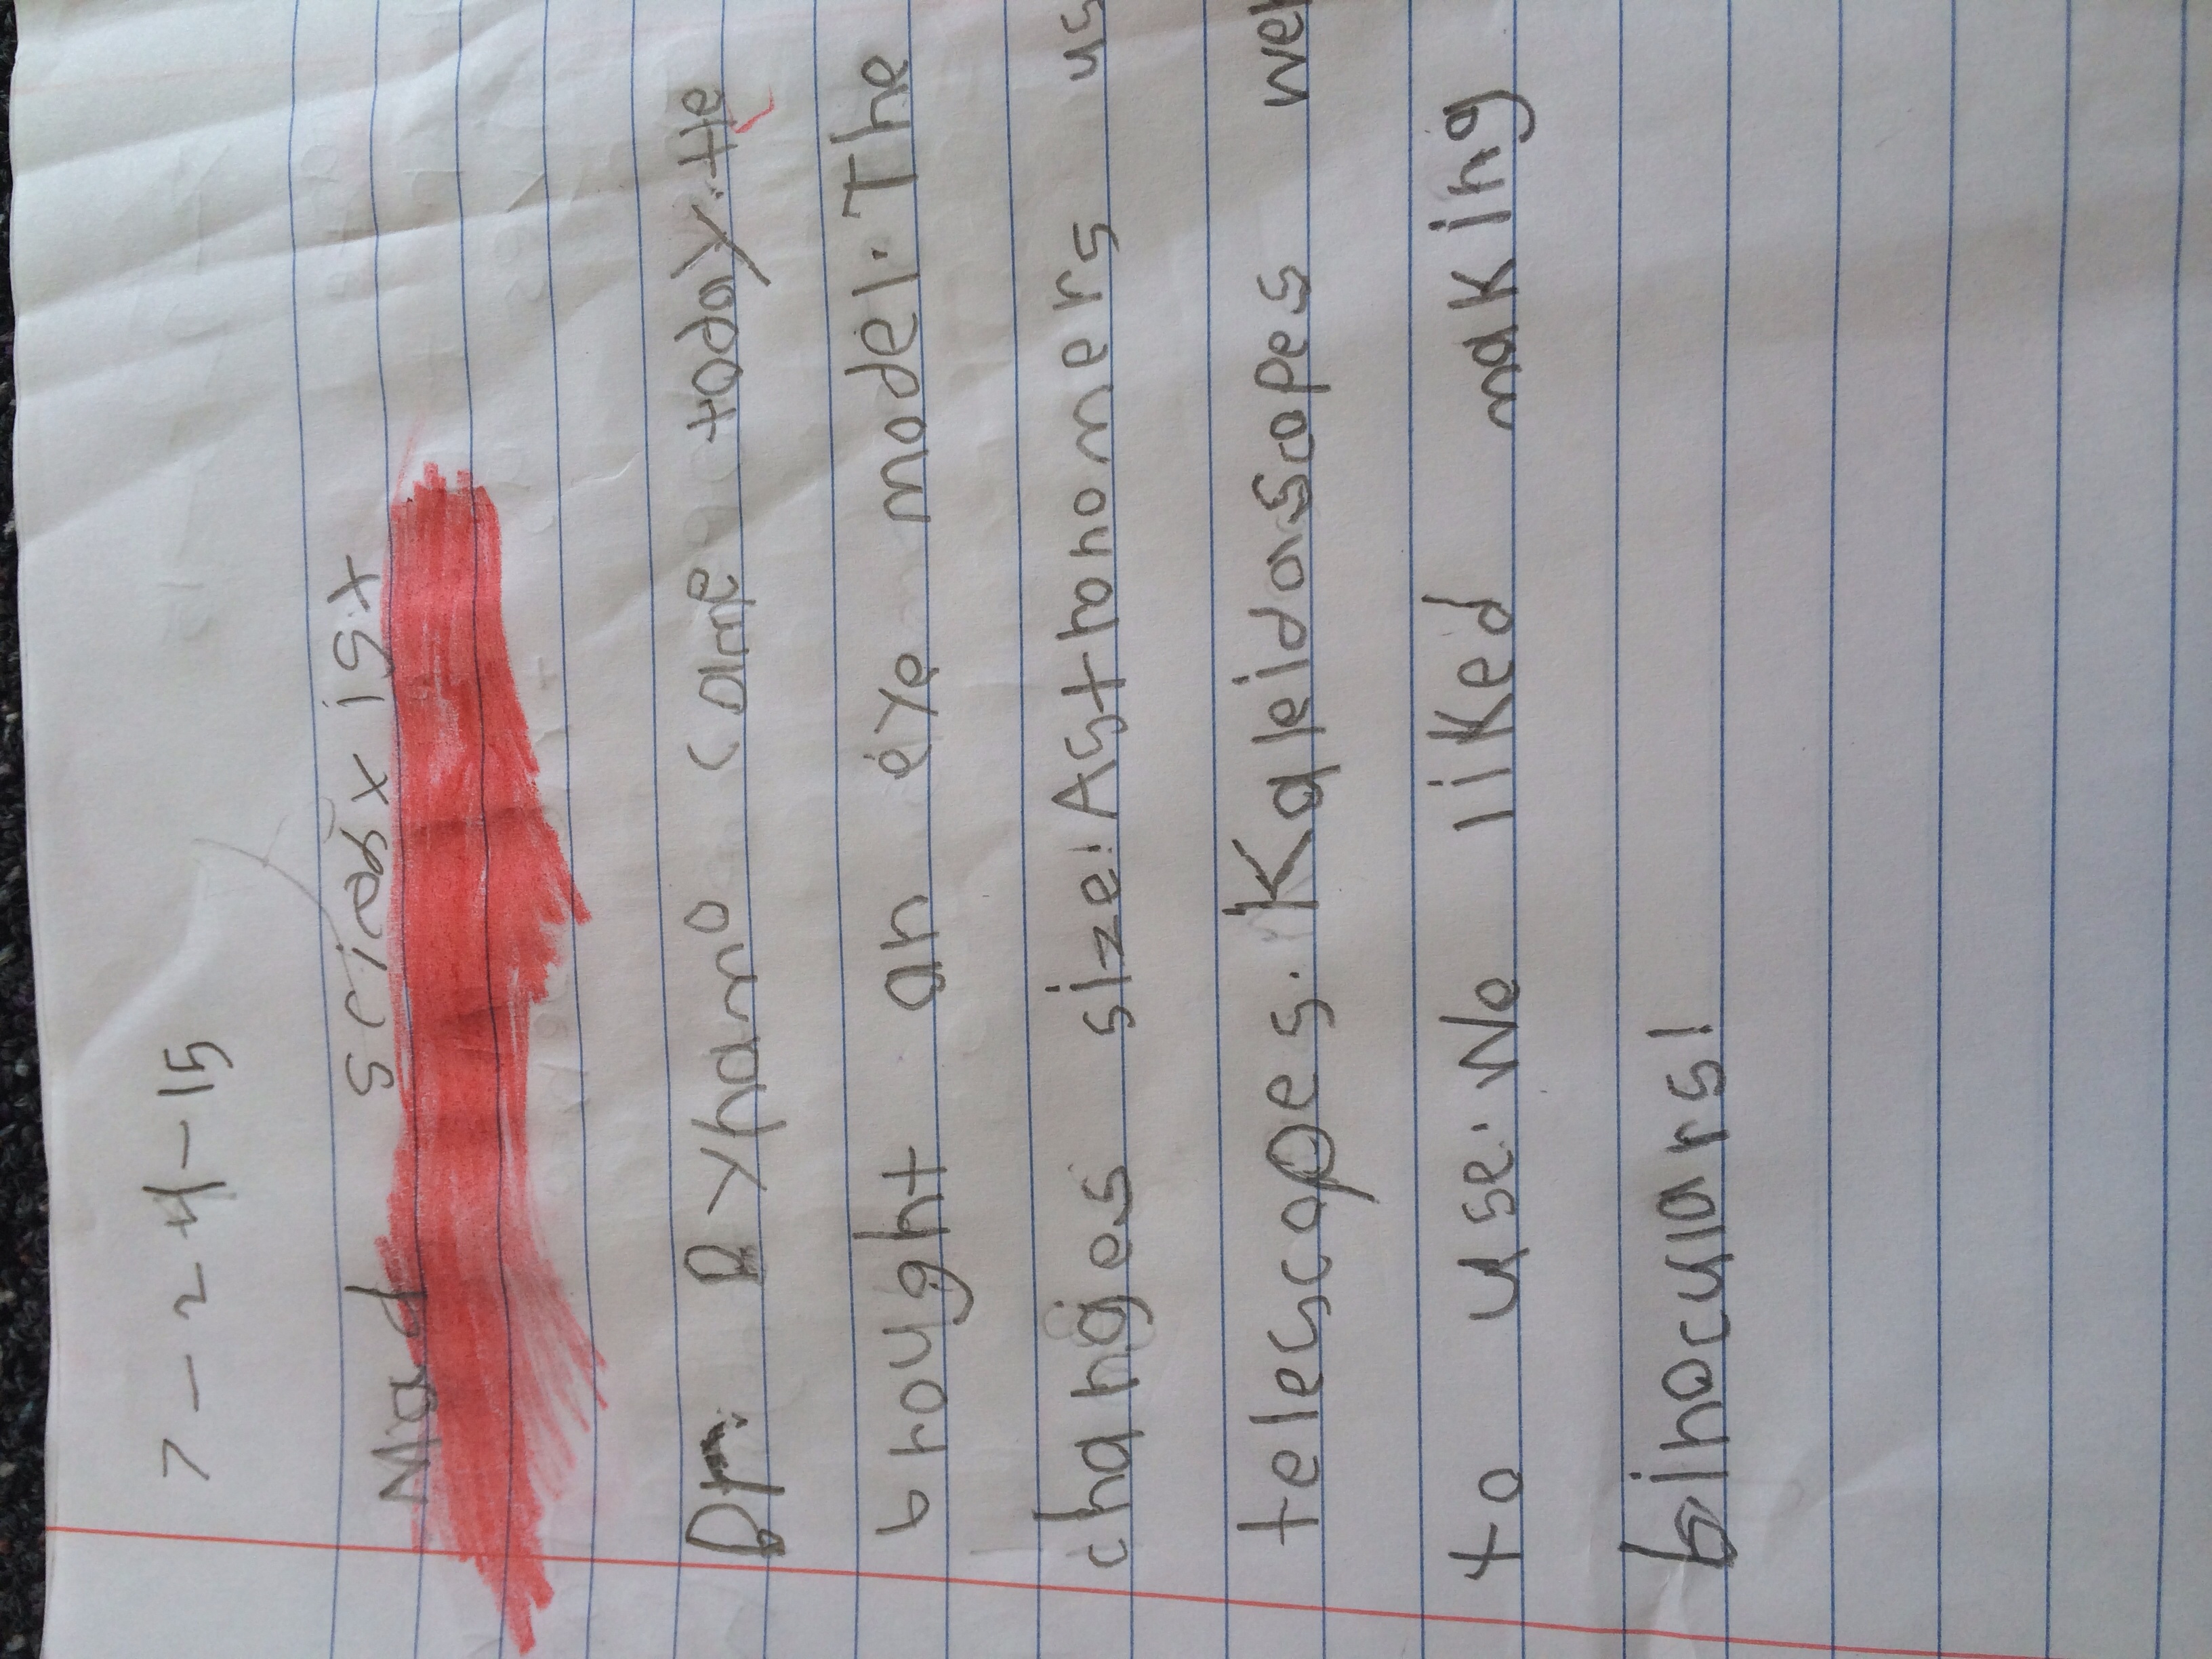 7-24-15
Mad sciesxisx
Dr. Dyhamo came today. He
brought an eye model. The
changes size! Asthonomers us
telescopes. Kaleidoscopes we
to use. We liked making
binoculars!